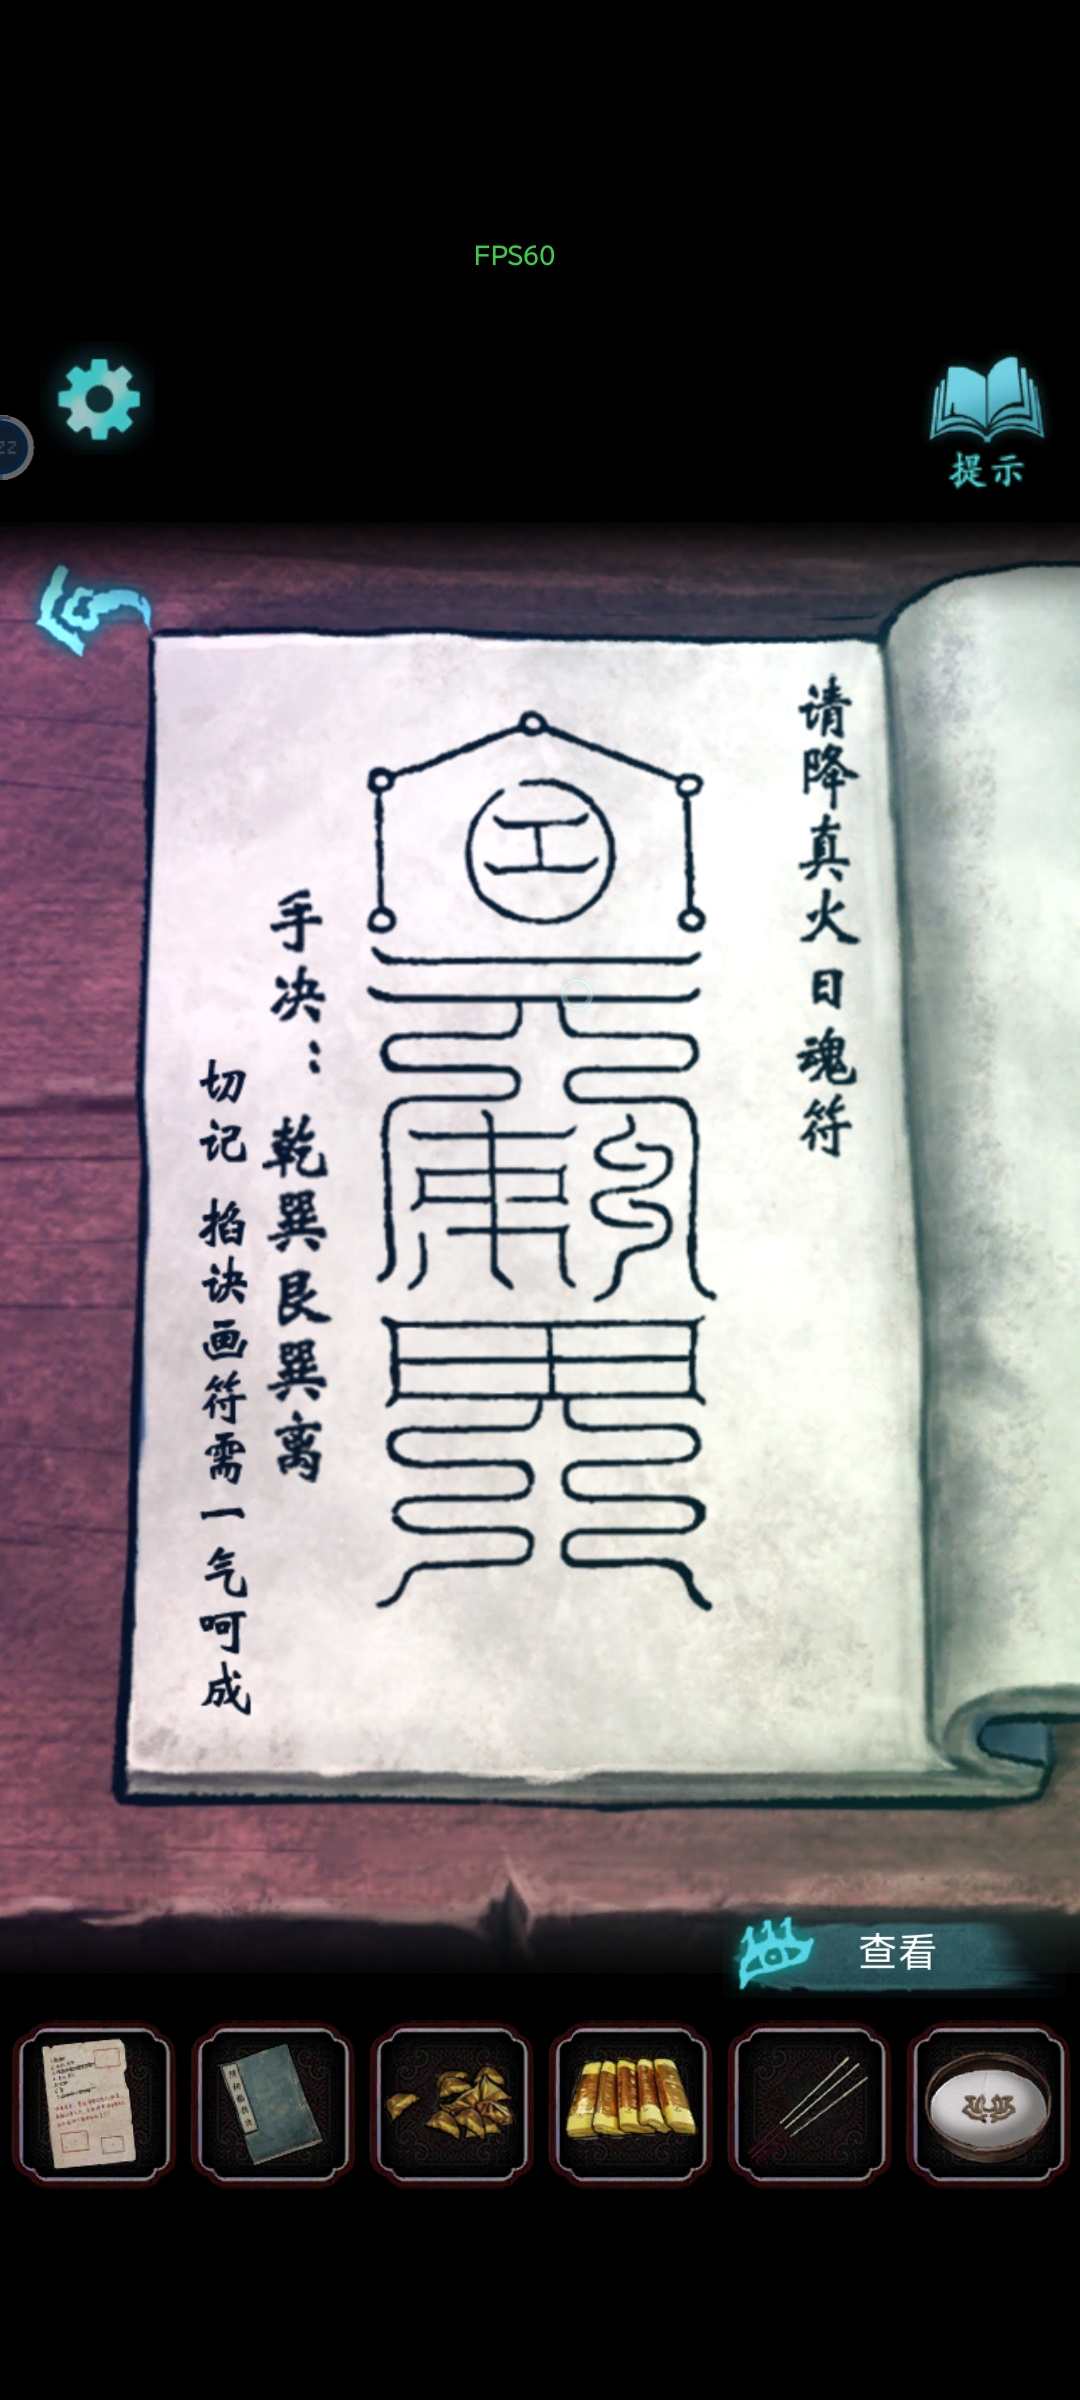 FPS60
提示
请降真火日魂符
手决：乾巽艮巽离
切记 掐诀画符需一气呵成
查看